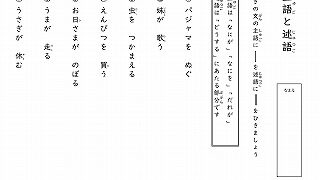 語と述語
の文の主語に を述語に をひきましょう
なまえ
語は「なにが」「なにを」「だれが」
語は「どうする」にあたる部分です
パジャマを ぬぐ
妹が 歌う
虫を つかまえる
えんぴつを 買う
お日さまが のぼる
うまが 走る
うさぎが 休む